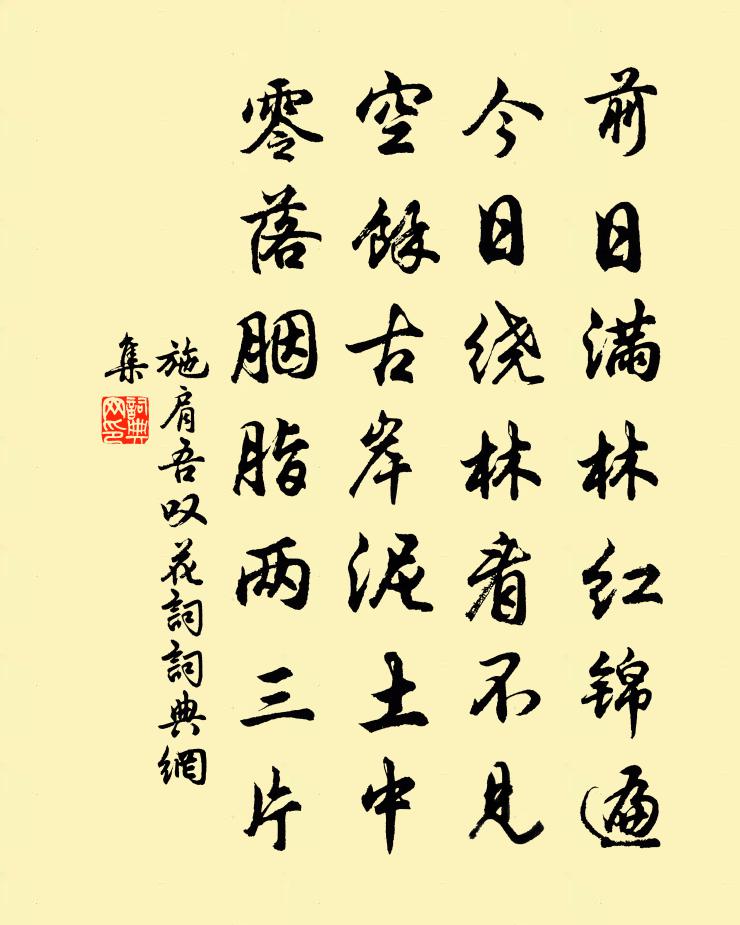 前日满林红锦遍
今日绕林看不见
空餘古岸泥土中
零落胭脂两三片
施肩吾叹花詞詞典網
集
詞典
网印